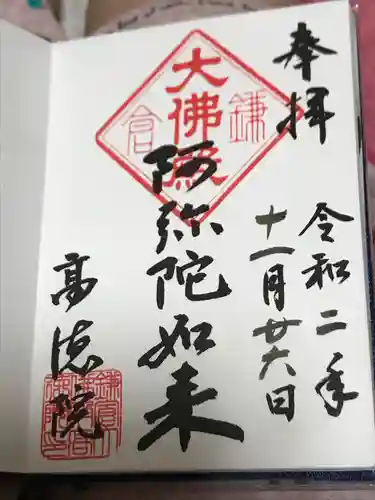 奉拝
令和二年
十一月廿六日
大佛殿
鎌倉
阿弥陀如来
高徳院